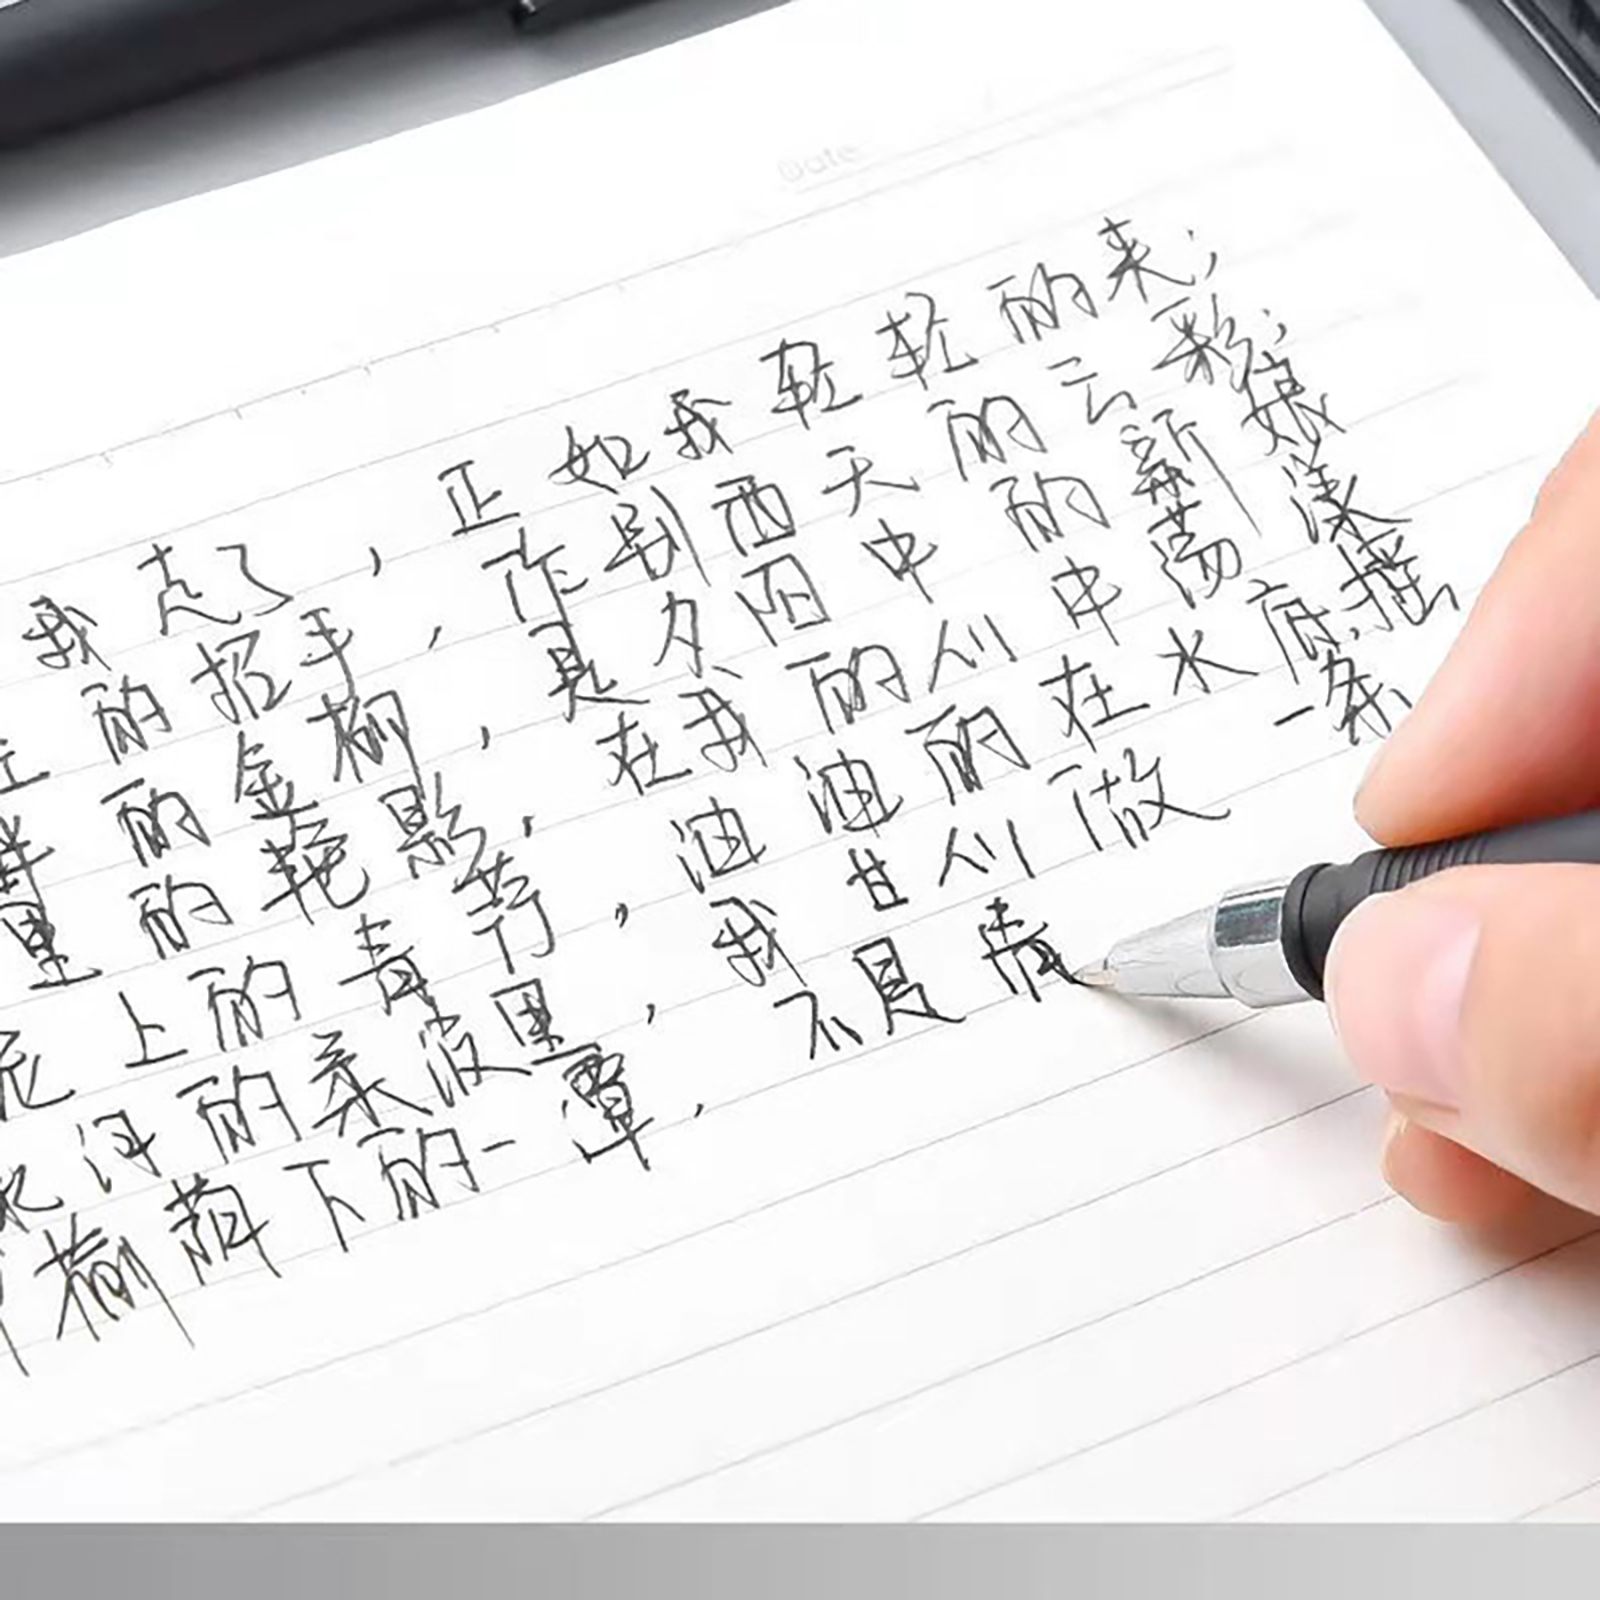 Date
我走了，正如我轻轻的来；
的招手，作别西天的云彩；
的金柳，是夕阳中的新娘
里的艳影，在我的心中荡漾
泥上的青荇，油油的在水底，摇
河的柔波里，我甘心做一条
榆荫下的一潭，不是清